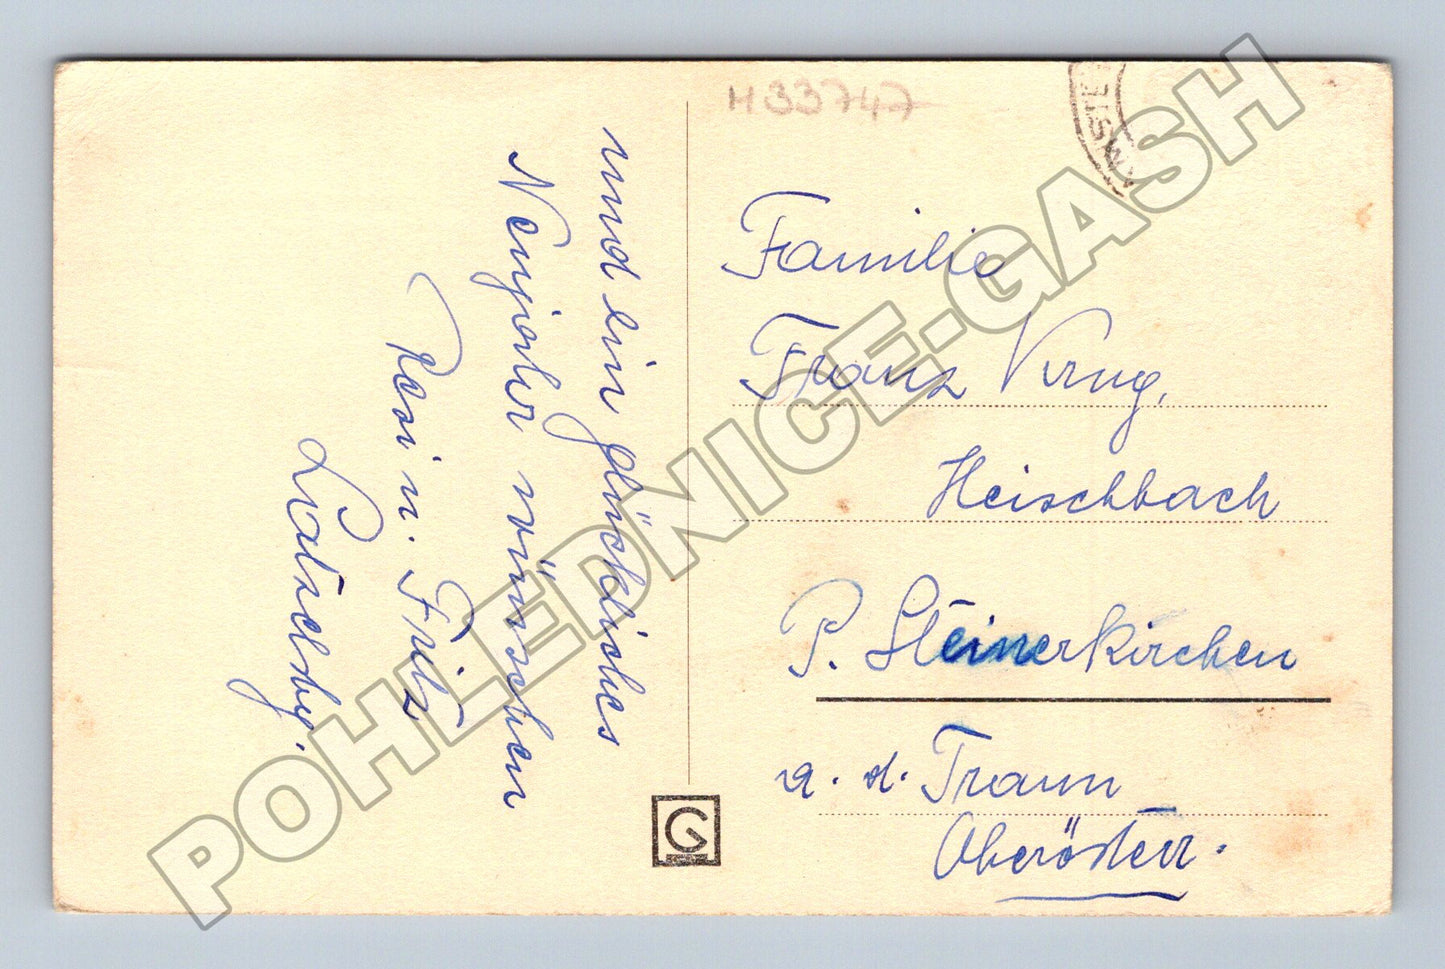 H33747
AMSTE
und ein glückliches
Neujahr wünschen
Resi u. Fritz
Familie
Franz Krug,
Heischbach
P. Steinerkirchen
a. d. Traun
Oberösterr.
G
POHLEDNICE-GASH